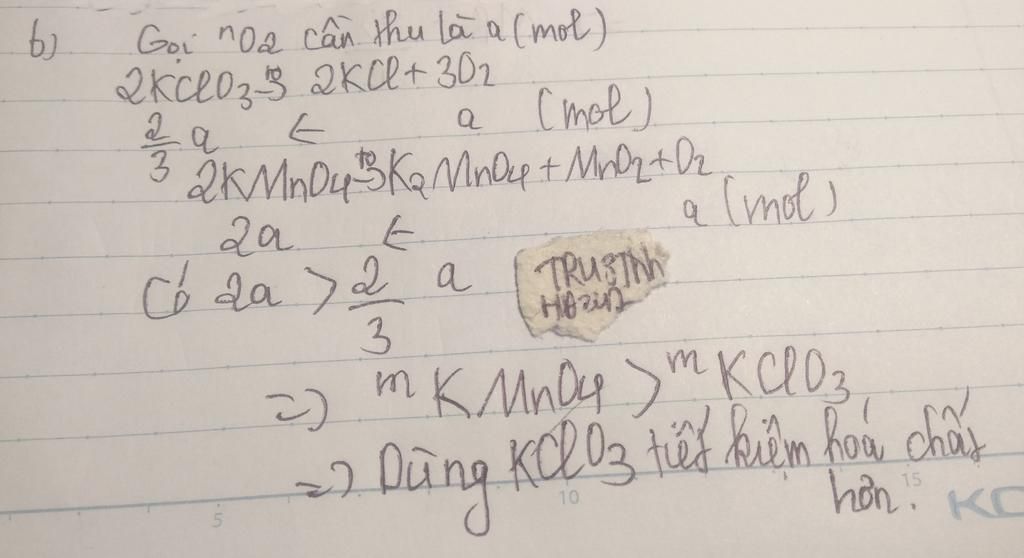 b) Gọi nO2 cần thu là a (mol)
2KClO3 to→ 2KCl + 3O2
2/3 a ← a (mol)
2KMnO4 to→ K2MnO4 + MnO2 + O2
2a ← a (mol)
Có 2a > 2/3 a
=> mKMnO4 > mKClO3
=> Dùng KClO3 tiết kiệm hoá chất
hơn.
5 10 15 KO